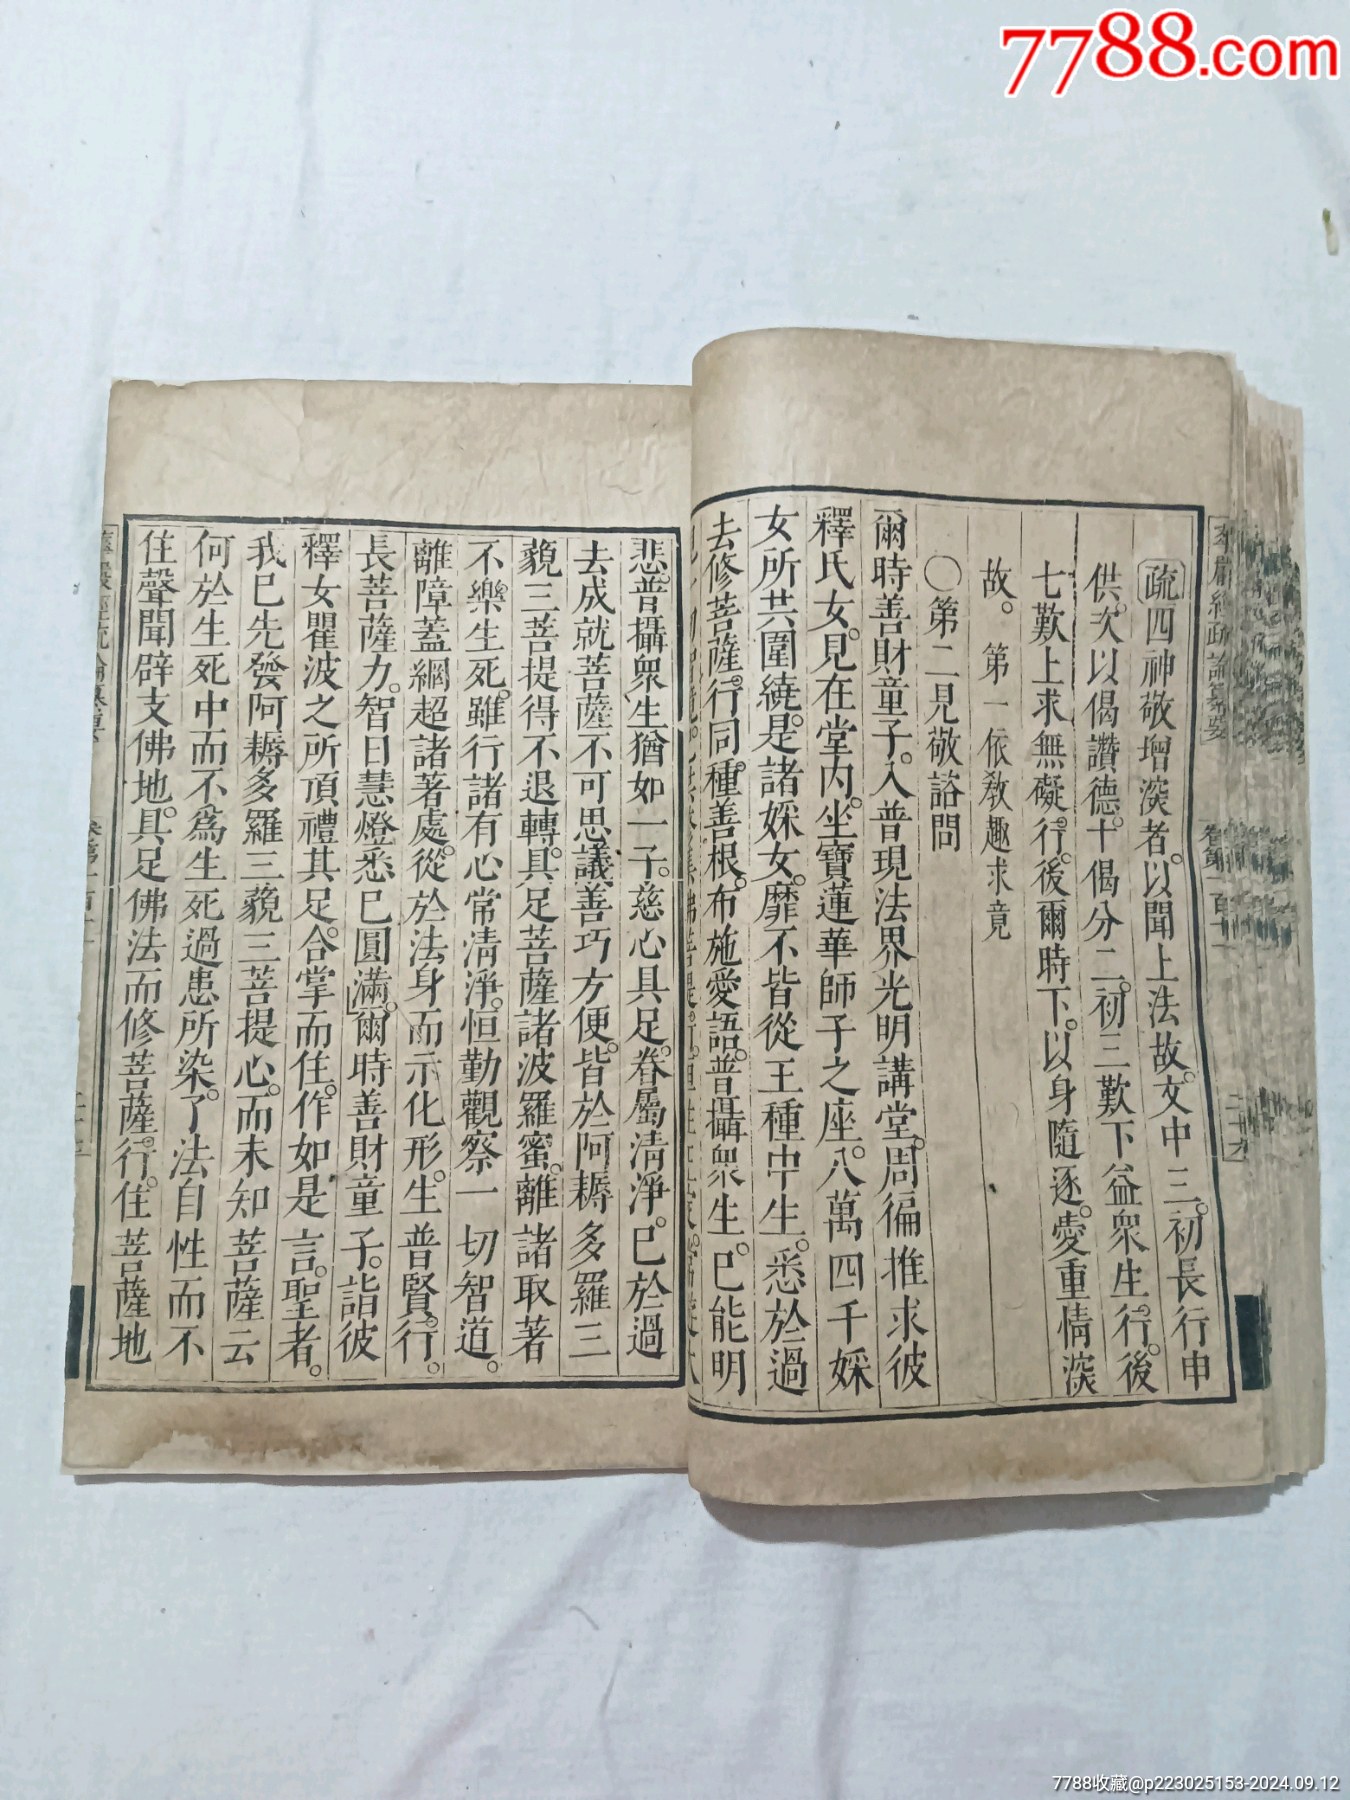 7788.com
華嚴經疏論纂要
卷第一百十一
二十九
疏四神敬增深者。以聞上法故。文中三。初長行申
供。次以偈讚德。十偈分二。初三歎下益衆生行。後
七歎上求無礙行。後爾時下。以身隨逐。愛重情深
故。第一依教趣求竟
〇第二見敬諮問
爾時善財童子。入普現法界光明講堂。周徧推求彼
釋氏女。見在堂內。坐寶蓮華師子之座。八萬四千婇
女所共圍繞。是諸婇女。靡不皆從王種中生。悉於過
去修菩薩行。同種善根。布施愛語。普攝衆生。已能明
悲。普攝衆生猶如一子。慈心具足。眷屬清淨。已於過
去成就菩薩不可思議善巧方便。皆於阿耨多羅三
藐三菩提得不退轉。具足菩薩諸波羅蜜。離諸取著
不樂生死。雖行諸有心常清淨。恒勤觀察一切智道。
離障蓋網超諸著處。從於法身而示化形。生普賢行。
長菩薩力。智日慧燈悉已圓滿。爾時善財童子。詣彼
釋女瞿波之所頂禮其足。合掌而住。作如是言。聖者。
我已先發阿耨多羅三藐三菩提心。而未知菩薩云
何於生死中而不爲生死過患所染。了法自性而不
住聲聞辟支佛地。具足佛法而修菩薩行。住菩薩地
7788收藏@p223025153-2024.09.12